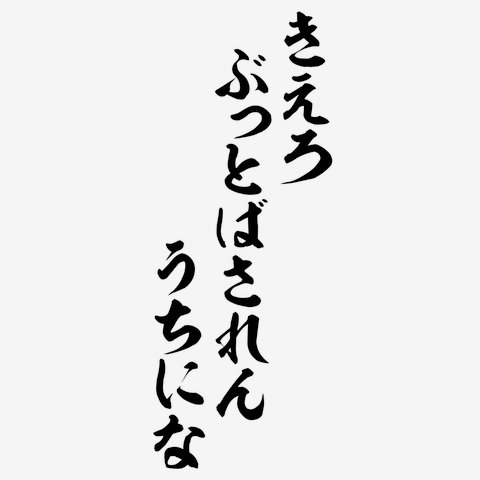 きえろ
ぶっとばされん
うちにな